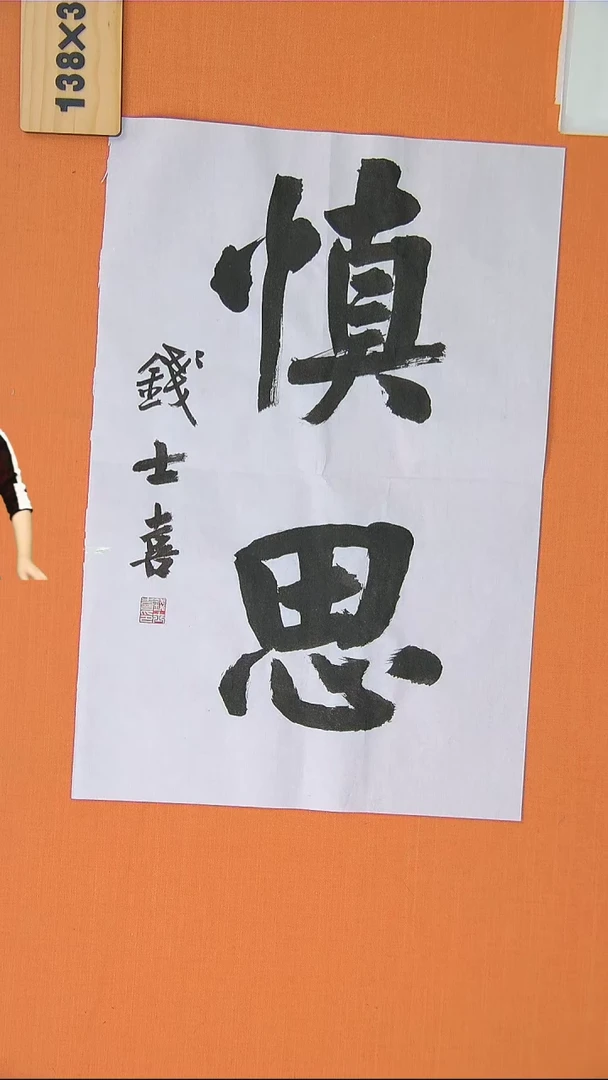 慎思
錢士喜
138×3